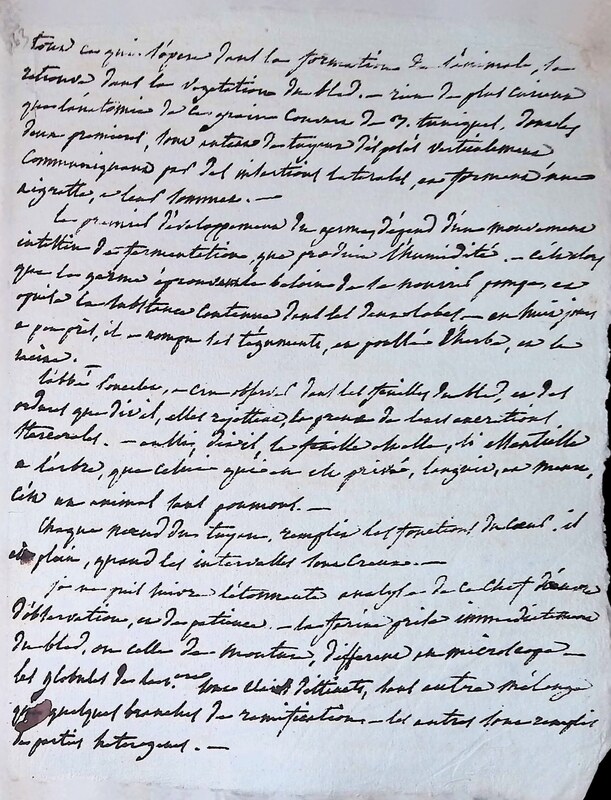 tout ce qui s'opere dans la formation de l'animale, se
retrouve dans la vegetation du bled. — rien de plus curieux
que l'anatomie de ce grain couvert de 3. tuniques, dont les
deux premieres, sont entées de tuyaux déposés verticalement
communiquans par des insertions laterales, et formant une
aigrette, a leur sommet. —
Le premier développement du germe, dépend d'un mouvement
intestin de fermentation, que produit l'humidité. — c'est alors
que le germe éprouvant le besoin de se nourrir pompe, et
épuise la substance contenue dans les deux lobes. — en huit jours
a peu près, il a rompu les téguments, et poussé l'herbe, et la
racine.
l'abbé Poncelet, a cru observer dans les feuilles du bled, et des
ordures que dit-il, elles rejettent, la preuve de leurs excretions
stercorales. — enfin, dit-il, la feuille est elle, si essentielle
a l'arbre, que celui qui en est privé, languit, et meurt,
c'est un animal sans poumons. —
Chaque nœud du tuyau, remplit les fonctions du cœur. il
est plein, quand les intervalles sont creux. —
je ne puis suivre l'étonnante analyse de ce chef d'œuvre
d'observation, et de patience. — la farine prise immédiatement
du bled, ou celle de mouture, different au microscope —
les globules de la 1.ere sont clairs distincts, sans autre mélange
que quelques branches de ramifications — les autres sont remplis
de parties heterogenes. —